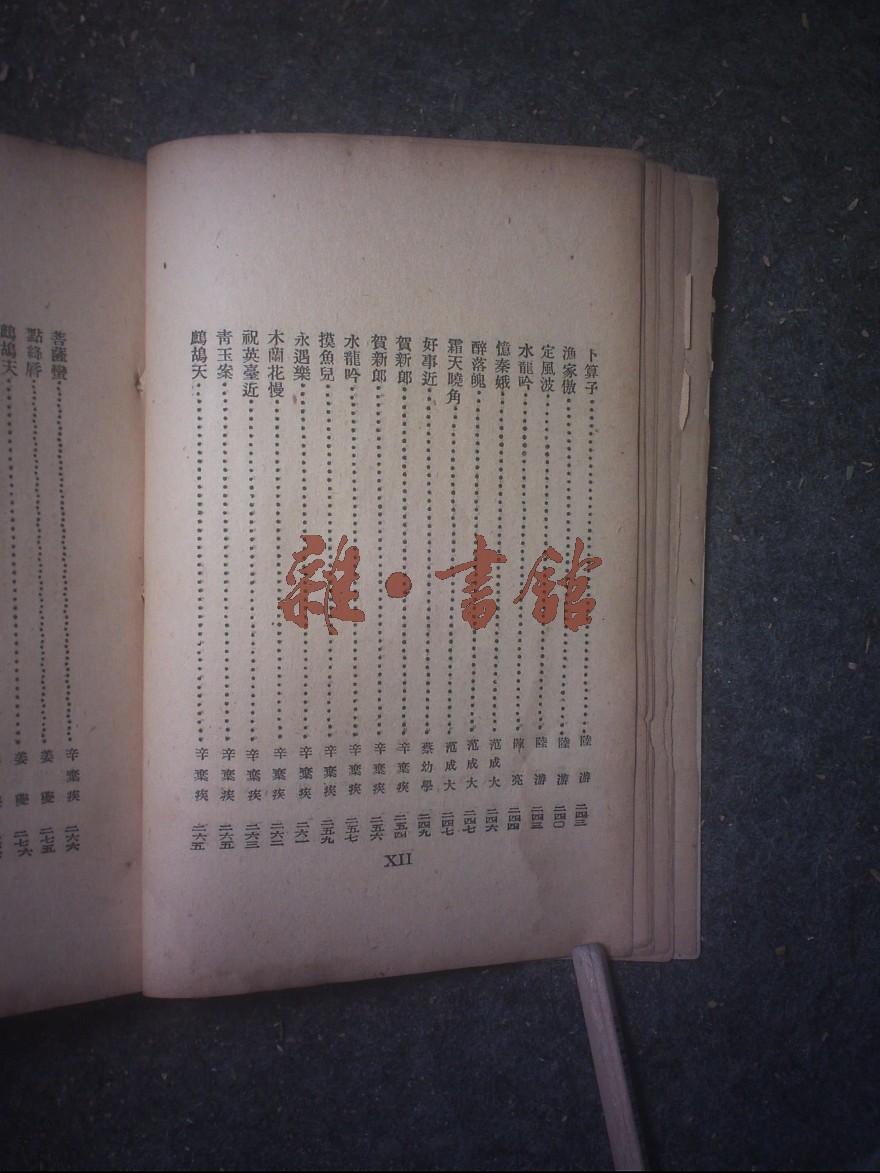 卜算子 陸游 二四三
漁家傲 陸游 二四〇
定風波 陸游 二四三
水龍吟 陳亮 二四四
憶秦娥 范成大 二四六
醉落魄 范成大 二四七
霜天曉角 范成大 二四七
好事近 蔡幼學 二四九
賀新郎 辛棄疾 二五四
賀新郎 辛棄疾 二五六
水龍吟 辛棄疾 二五七
摸魚兒 辛棄疾 二五九
永遇樂 辛棄疾 二六一
木蘭花慢 辛棄疾 二六二
祝英臺近 辛棄疾 二六三
青玉案 辛棄疾 二六五
鷓鴣天 辛棄疾 二六五
XII
菩薩蠻 辛棄疾 二六六
點絳唇 姜夔 二七五
鷓鴣天 姜夔 二七六
雜·書館